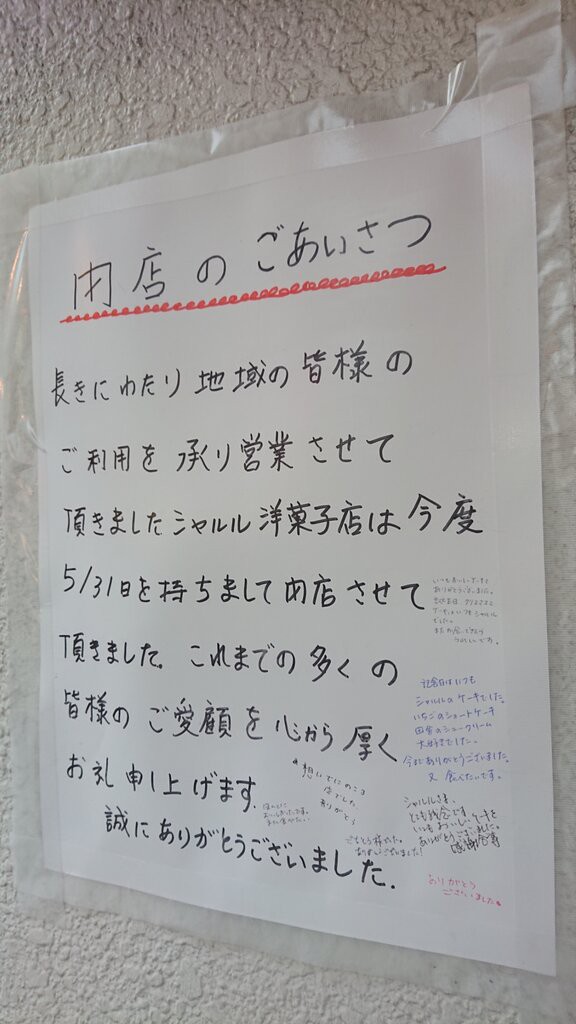 閉店のごあいさつ
長きにわたり地域の皆様の
ご利用を承り営業させて
頂きましたシャルル洋菓子店は今度
5/31日を持ちまして閉店させて
頂きました。これまでの多くの
皆様のご愛顧を心から厚く
お礼申し上げます。
誠にありがとうございました.
いつもおいしいケーキを
ありがとうございました。
記念日はいつも
シャルルのケーキでした。
いちごのショートケーキ
田舎のシュークリーム
大好きでした。
今までありがとうございました。
又食べたいです。
ありがとう
シャルルさま、
とても残念です。
いつもおいしいケーキを
ありがとうございました。
感謝
ありがとうございました!
ありがとう
ございました